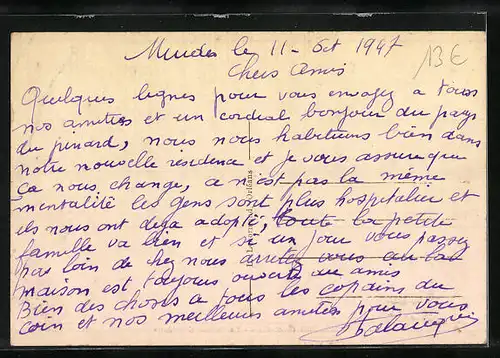 le 11 - Oct 1947
13 €
Chers Amis
Quelques lignes pour vous envoyez a tous
nos amities et un cordial bonjour du pays
du pinard, nous nous habituons bien dans
notre nouvelle residence et je vous assure que
ça nous change, ce n'est pas la même
mentalité les gens sont plus hospitalier et
ils nous ont deja adopté, toute la petite
famille va bien et si un jour vous passez
pas loin de chez nous arretez vous
maison est toujours ouverte au amis
Bien des choses a tous les copains du
coin et nos meilleurs amities pour vous